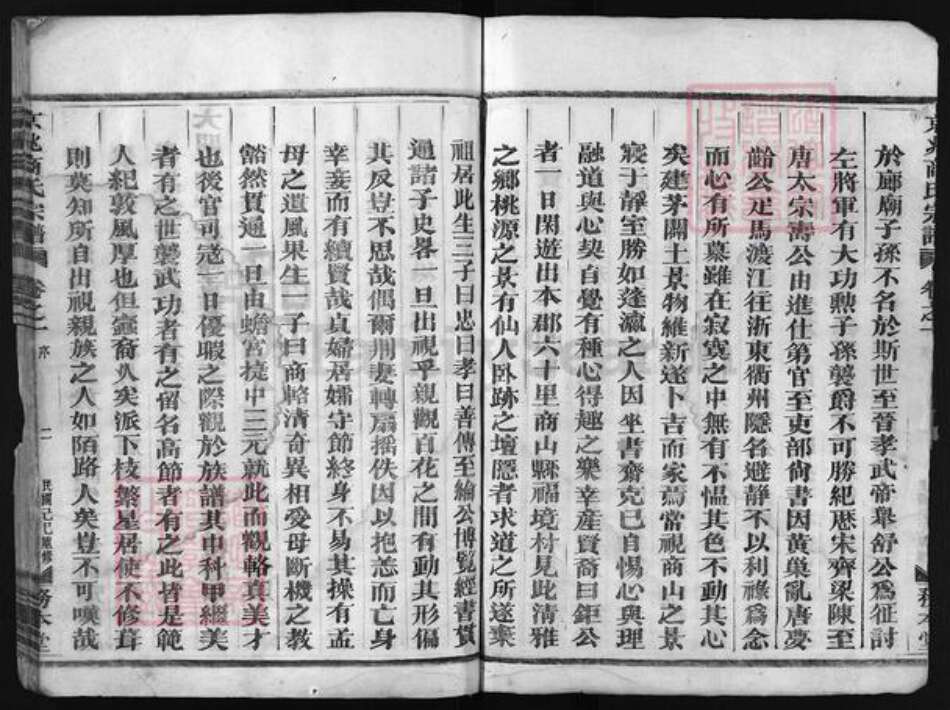 於廊廟子孫不名於斯世至晉孝武帝舉舒公為征討
左將軍有大功勲子孫襲爵不可勝紀歷宋齊梁陳至
唐太宗壽公由進仕第官至吏部尙書因黃巢亂唐夢
齡公疋馬渡江往浙東衢州隱名避靜不以利祿爲念
而心有所慕雖在寂寞之中無有不慍其色不動其心
矣建茅關土景物維新遂卜吉而家焉常視商山之景
寢于靜室勝如逢瀛之人因坐書齋克已自惕心與理
融道與心契自覺有種心得趣之樂幸產賢裔曰鉅公
者一日閑遊出本郡六十里商山縣福境材見此清雅
之鄉桃源之景有仙人臥跡之壇隱者求道之所遂棄
祖居此生三子曰忠曰孝曰善傳至綸公博覽經書貫
通諸子史畧一旦出視乎親觀百花之間有動其形偏
其反豈不思哉偶爾荆妻轉扇搖佚因以抱恙而亡身
幸妾而有續賢哉貞婦居孀守節終身不易其操有孟
母之遺風果生一子曰商輅清奇異相受母斷機之教
豁然貫通一旦由蟾宮捷中三元就此而觀輅真美才
也後官司寇一日優暇之際觀於族譜其中科甲繼美
者有之世襲武功者有之留名高節者有之此皆是範
人紀敦風厚也但螽裔久矣派下枝繁星居使不修葺
則莫知所自出視親族之人如陌路人矣豈不可嘆哉
京兆商氏宗譜 卷之一 序 二 民國己巳重修 務本堂